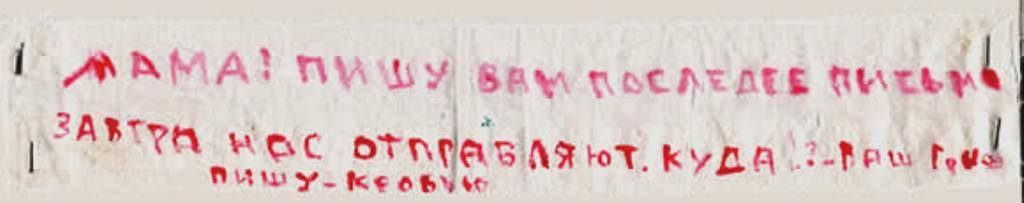 МАМА! ПИШУ ВАМ ПОСЛЕДЕЕ ПИСЬМО
ЗАВТРА НАС ОТПРАВЛЯЮТ. КУДА!?-ВАШ
ПИШУ-КРОВЬЮ